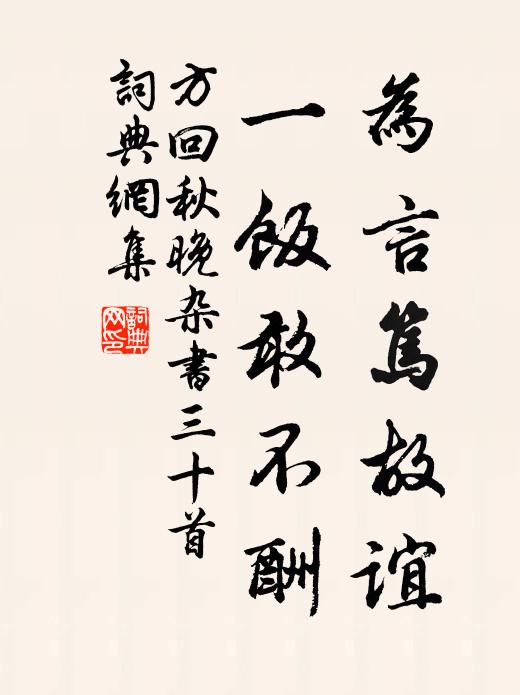 為言篤故誼
一飯敢不酬
方回秋晚杂書三十首
詞典網集
詞典网印